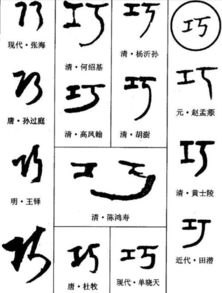 巧
巧
现代·张海
巧
清·何绍基
巧
清·杨沂孙
巧
元·赵孟頫
巧
唐·孙过庭
巧
清·高凤翰
巧
清·胡澍
巧
清·黄士陵
巧
明·王铎
巧
清·陈鸿寿
巧
近代·田潜
巧
巧
唐·杜牧
巧
现代·单晓天